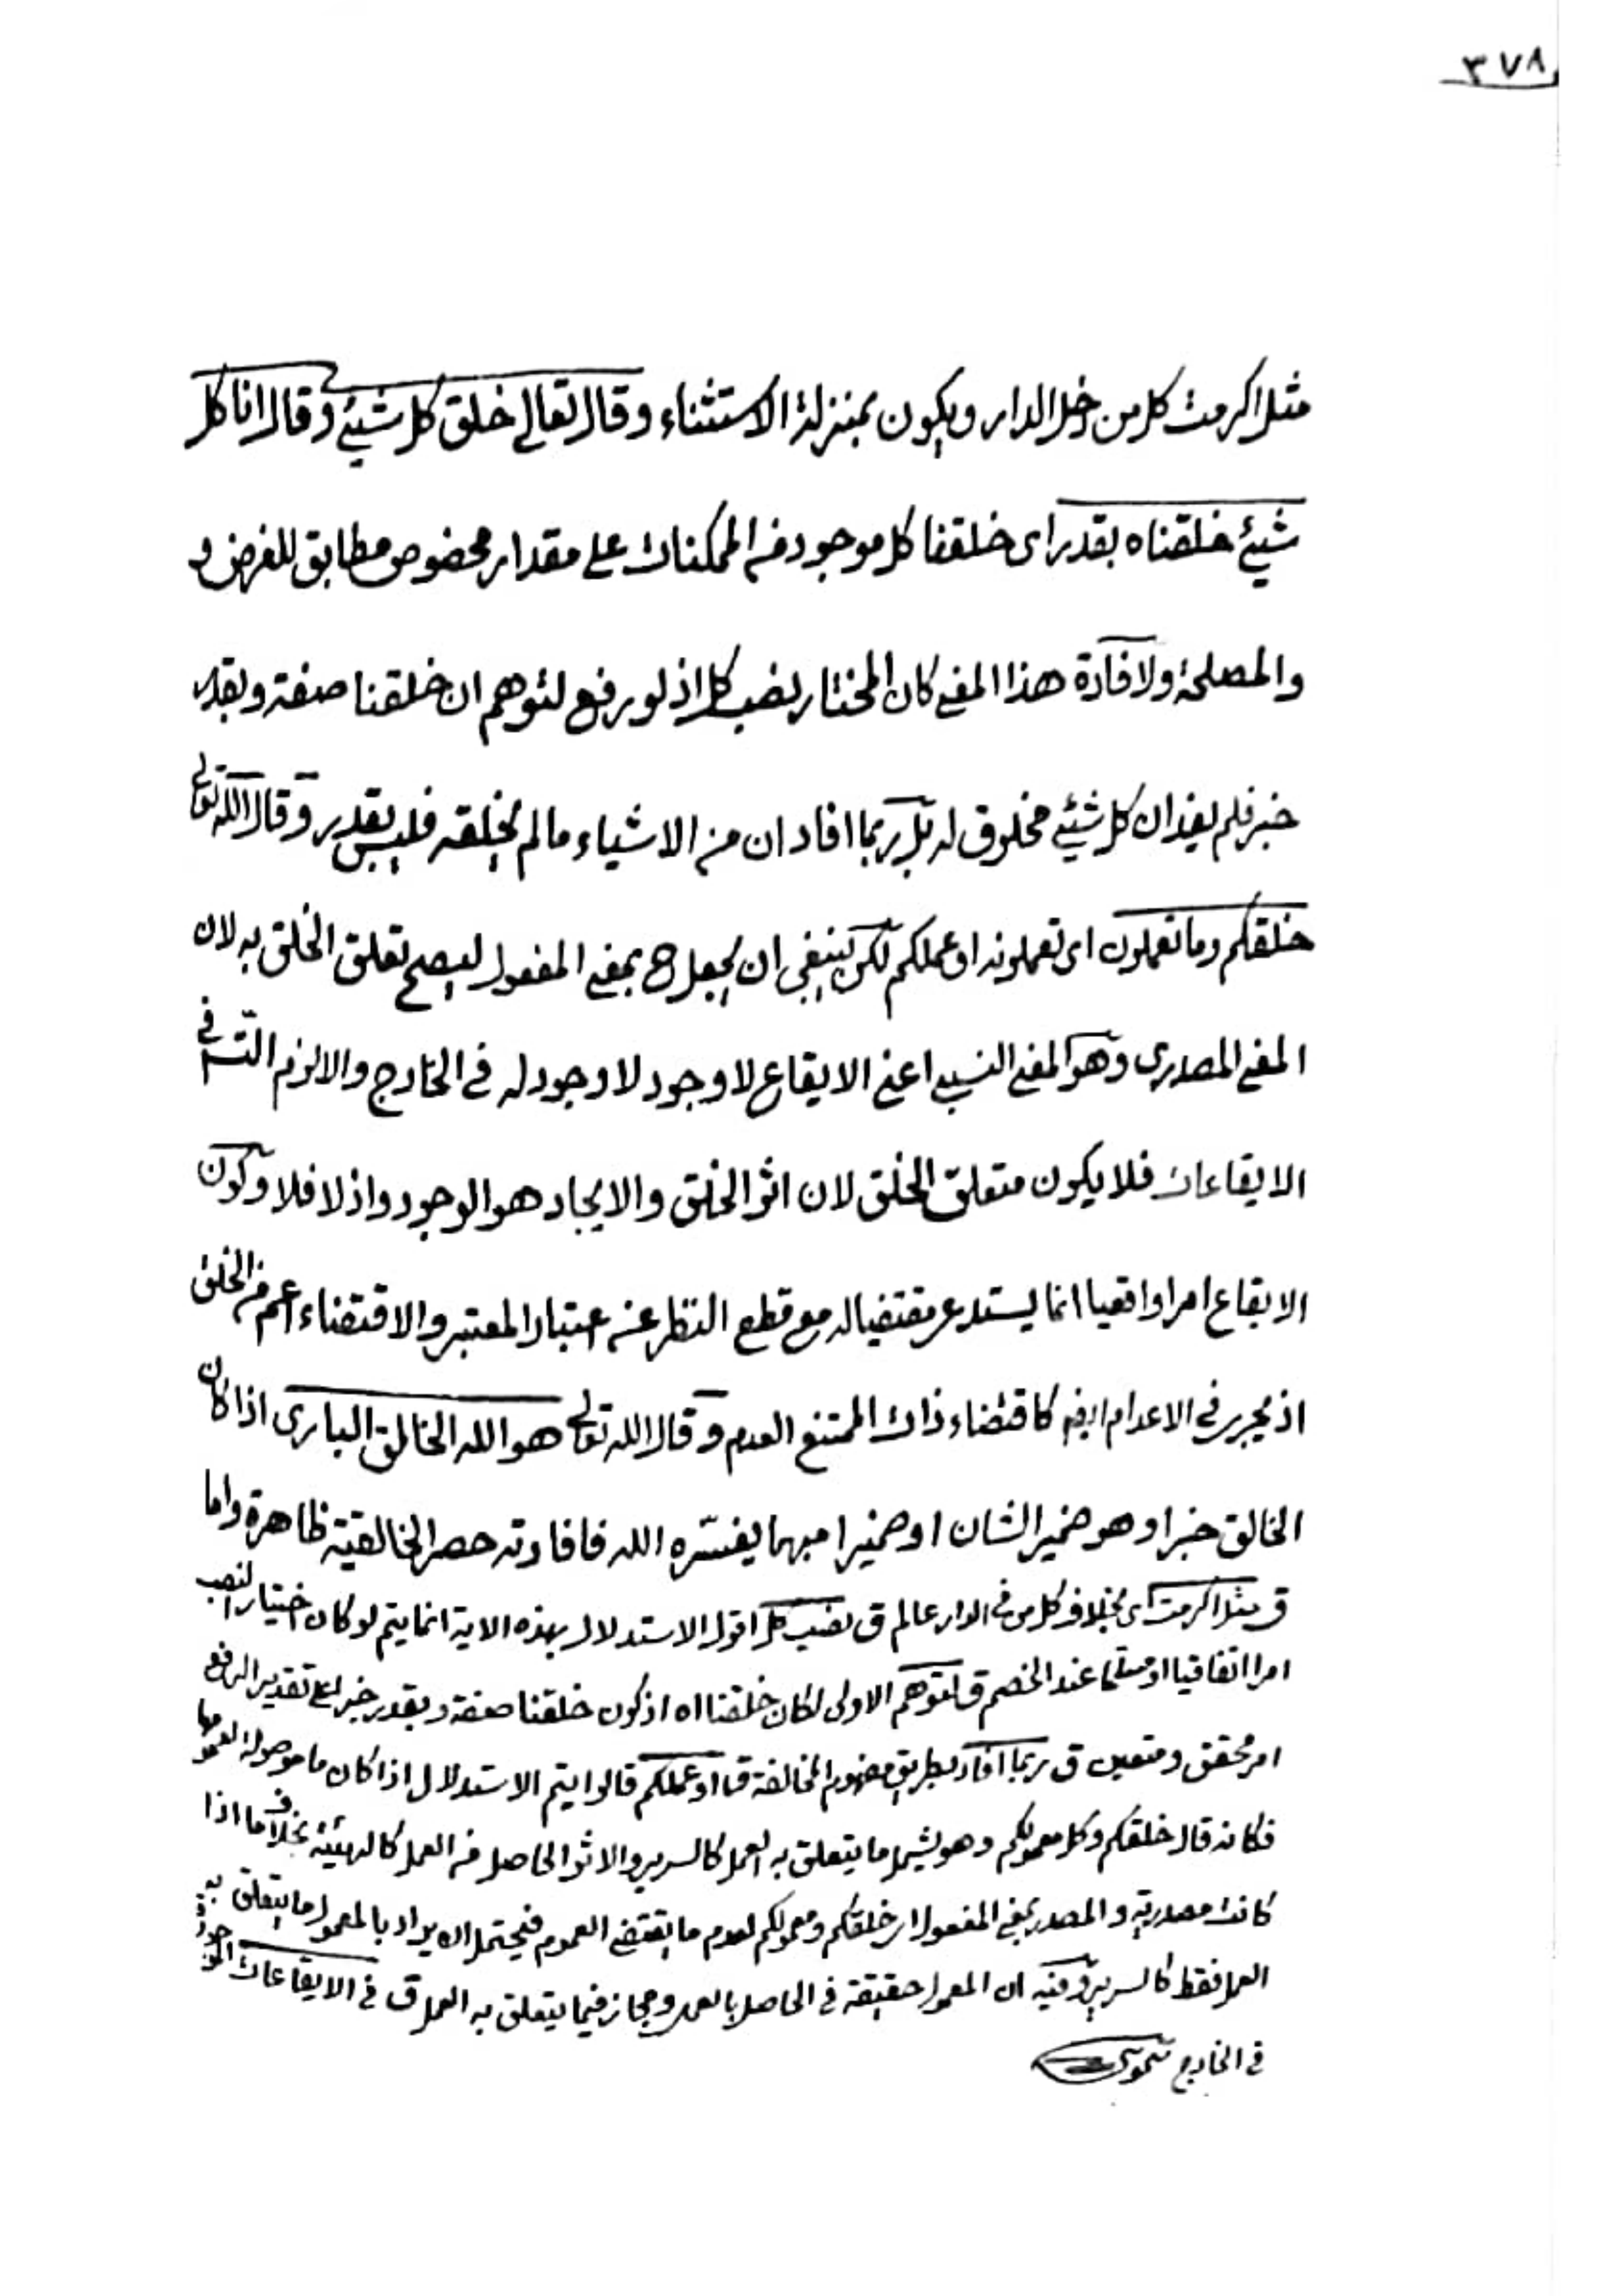 ٣٧٨
مثل اكرمت كل من دخل الدار ويكون بمنزلة الاستثناء وقال تعالى خلق كل شيئ وقال انا كل
شيئ خلقناه بقدر اى خلقنا كل موجود من الممكنات على مقدار مخصوص مطابق للغرض و
والمصلحة ولافادة هذا المعنى كان المختار نصب كل اذ لو رفع لتوهم ان خلقنا صفة وبقدر
خبر فلم يفد ان كل شيئ مخلوق له بل ربما افاد ان من الاشياء مالم يخلقه فليس بقدر وقال الله تعالى
خلقكم وما تعملون اى تعملونه او عملكم لكن ينبغى ان يجعل ح بمعنى المفعول ليصح تعلق الخلق به لان
المعنى المصدرى وهو المعنى النسبى اعنى الايقاع لا وجود لا وجود له فى الخارج والا لزم التسـ فى
الايقاعات فلا يكون متعلق الخلق لان اثر الخلق والايجاد هو الوجود واذ لا فلا وكون
الايقاع امرا واقعيا انما يستدعى مقتضيا له مع قطع النظر عن اعتبار المعتبر والاقتضاء اعم من الخلق
اذ يجرى فى الاعدام ايضا كاقتضاء ذات الممتنع العدم وقال الله تعالى هو الله الخالق البارى اذا كان
الخالق خبرا وهو ضمير الشان او ضميرا مبهما يفسّره الله فافادته حصر الخالقية ظاهرة واما
ق مثل اكرمت اى بخلاف كل من فى الدار عالم ق نصب كل اقول الاستدلال بهذه الاية انما يتم لو كان اختيار النصب
امرا اتفاقيا او مسلما عند الخصم ق لتوهم الاولى لكان خلقنا اه اذ كون خلقنا صفة وبقدر خبر على تقدير الرفع
امر محقق ومتعين ق ربما افاد بطريق مفهوم المخالفة ق او عملكم قالوا يتم الاستدلال اذا كان ما موصولة لعمومها
فكانه قال خلقكم وكل معمولكم وهو يشمل ما يتعلق به العمل كالسرير والاثر الحاصل من العمل كالهيئة بخلاف ما اذا
كانت مصدرية والمصدر بمعنى المفعول اى خلقكم ومعمولكم لعدم ما يقتضى العموم فيحتمل ان يراد بالمعمول ما يتعلق به
العمل فقط كالسرير وفيه ان المعمول حقيقة فى الحاصل بالعمل ومجاز فيما يتعلق به العمل ق فى الايقاعات الموجودة
فى الخارج